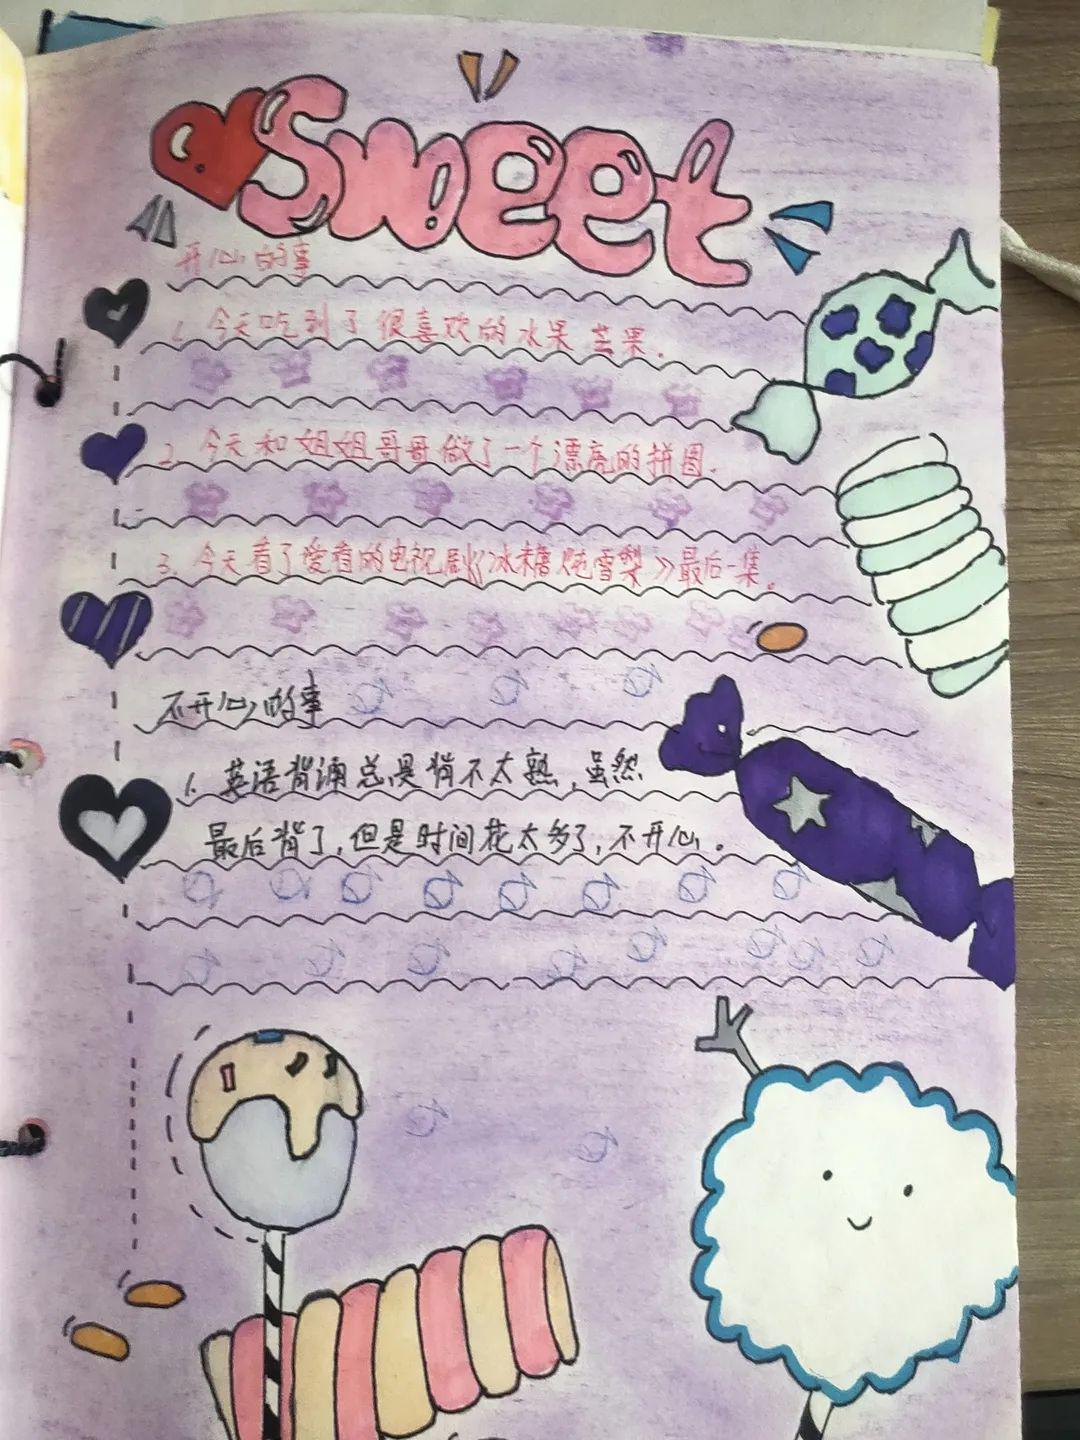 Sweet
开心的事
1. 今天吃到了很喜欢的水果芒果.
2. 今天和姐姐哥哥做了一个漂亮的拼图.
3. 今天看了爱看的电视剧《冰糖炖雪梨》最后一集。
不开心的事
1. 英语背诵总是背不太熟,虽然
最后背了,但是时间花太多了,不开心。